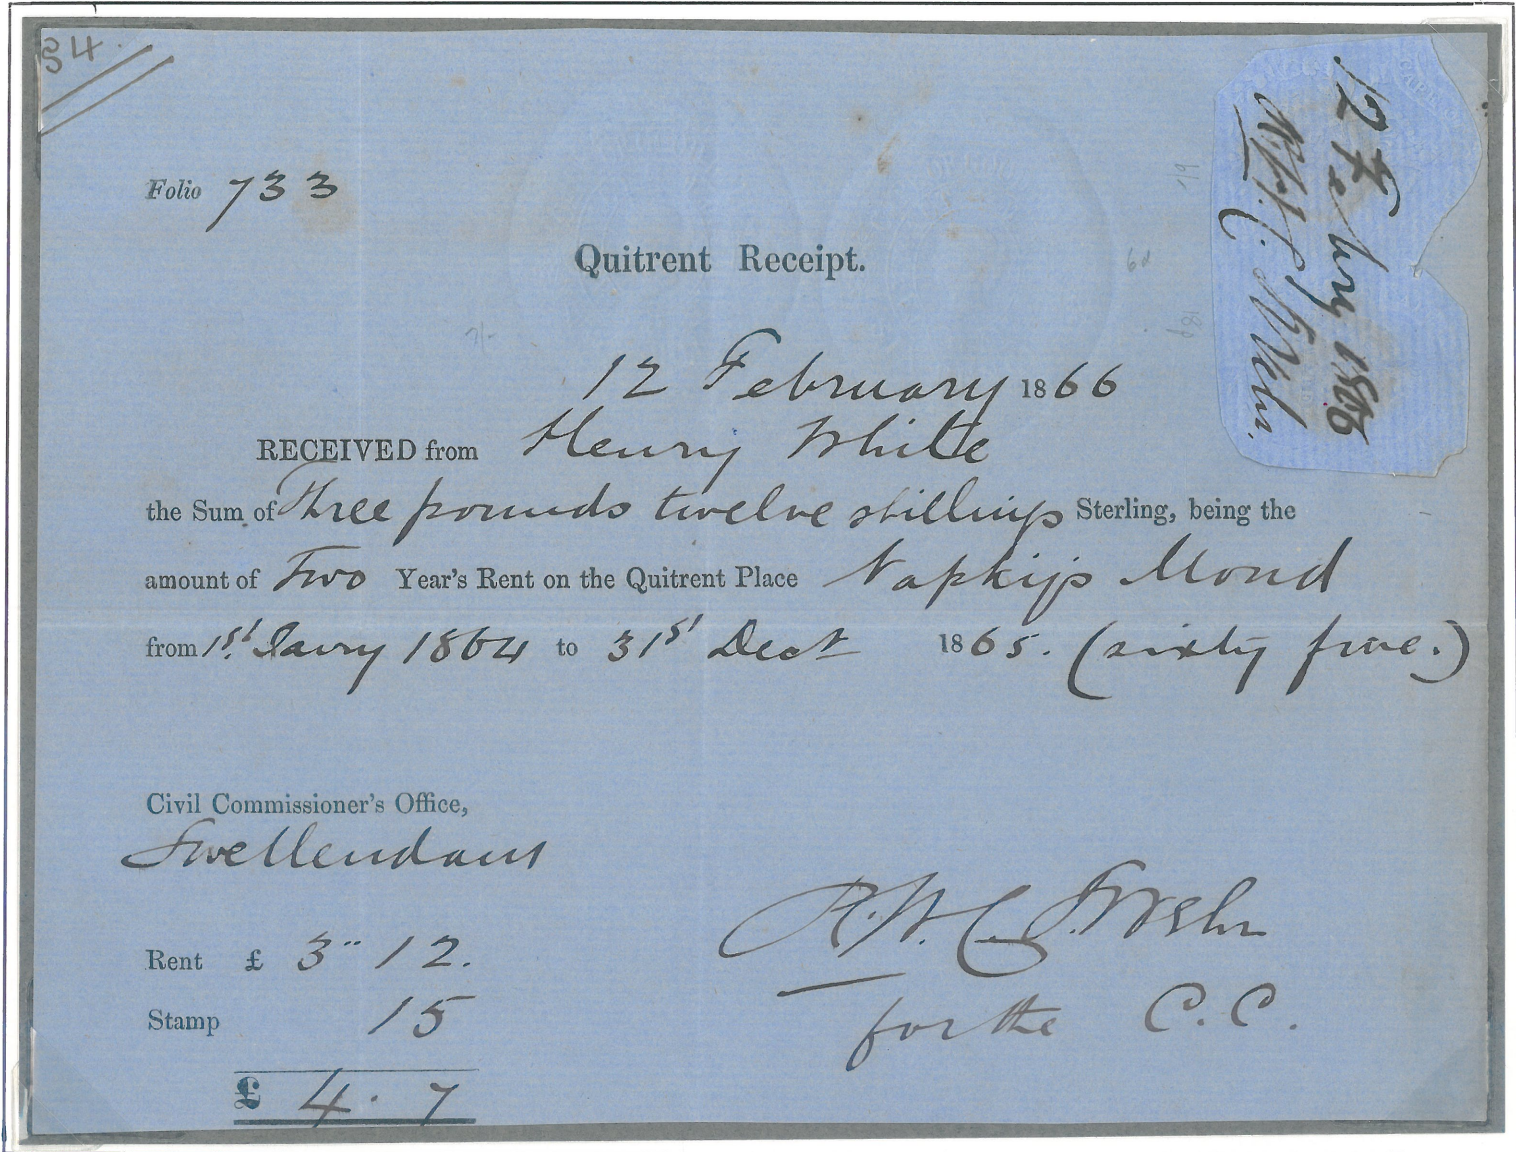 84.
Folio 733
Quitrent Receipt.
12 February 1866
RECEIVED from Henry White
the Sum of Three pounds twelve shillings Sterling, being the
amount of Two Year's Rent on the Quitrent Place Napkijs Mond
from 1st. Janry 1864 to 31st Decr 1865. (sixty five.)
Civil Commissioner's Office,
Swellendam
Rent £ 3" 12.
Stamp 15
£ 4. 7
for the C.C.
12 Febry 1866
6d